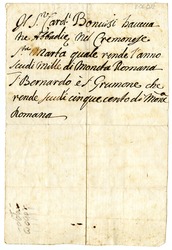 Il S.r Card. Bonuisi haueua
due Abbadie nel Cremonese
S.ta Marta quale rende l'anno
scudi Mille di Moneta Romana
S. Bernardo è S. Grumone che
rende scudi cinque cento di Mon.ta
Romana